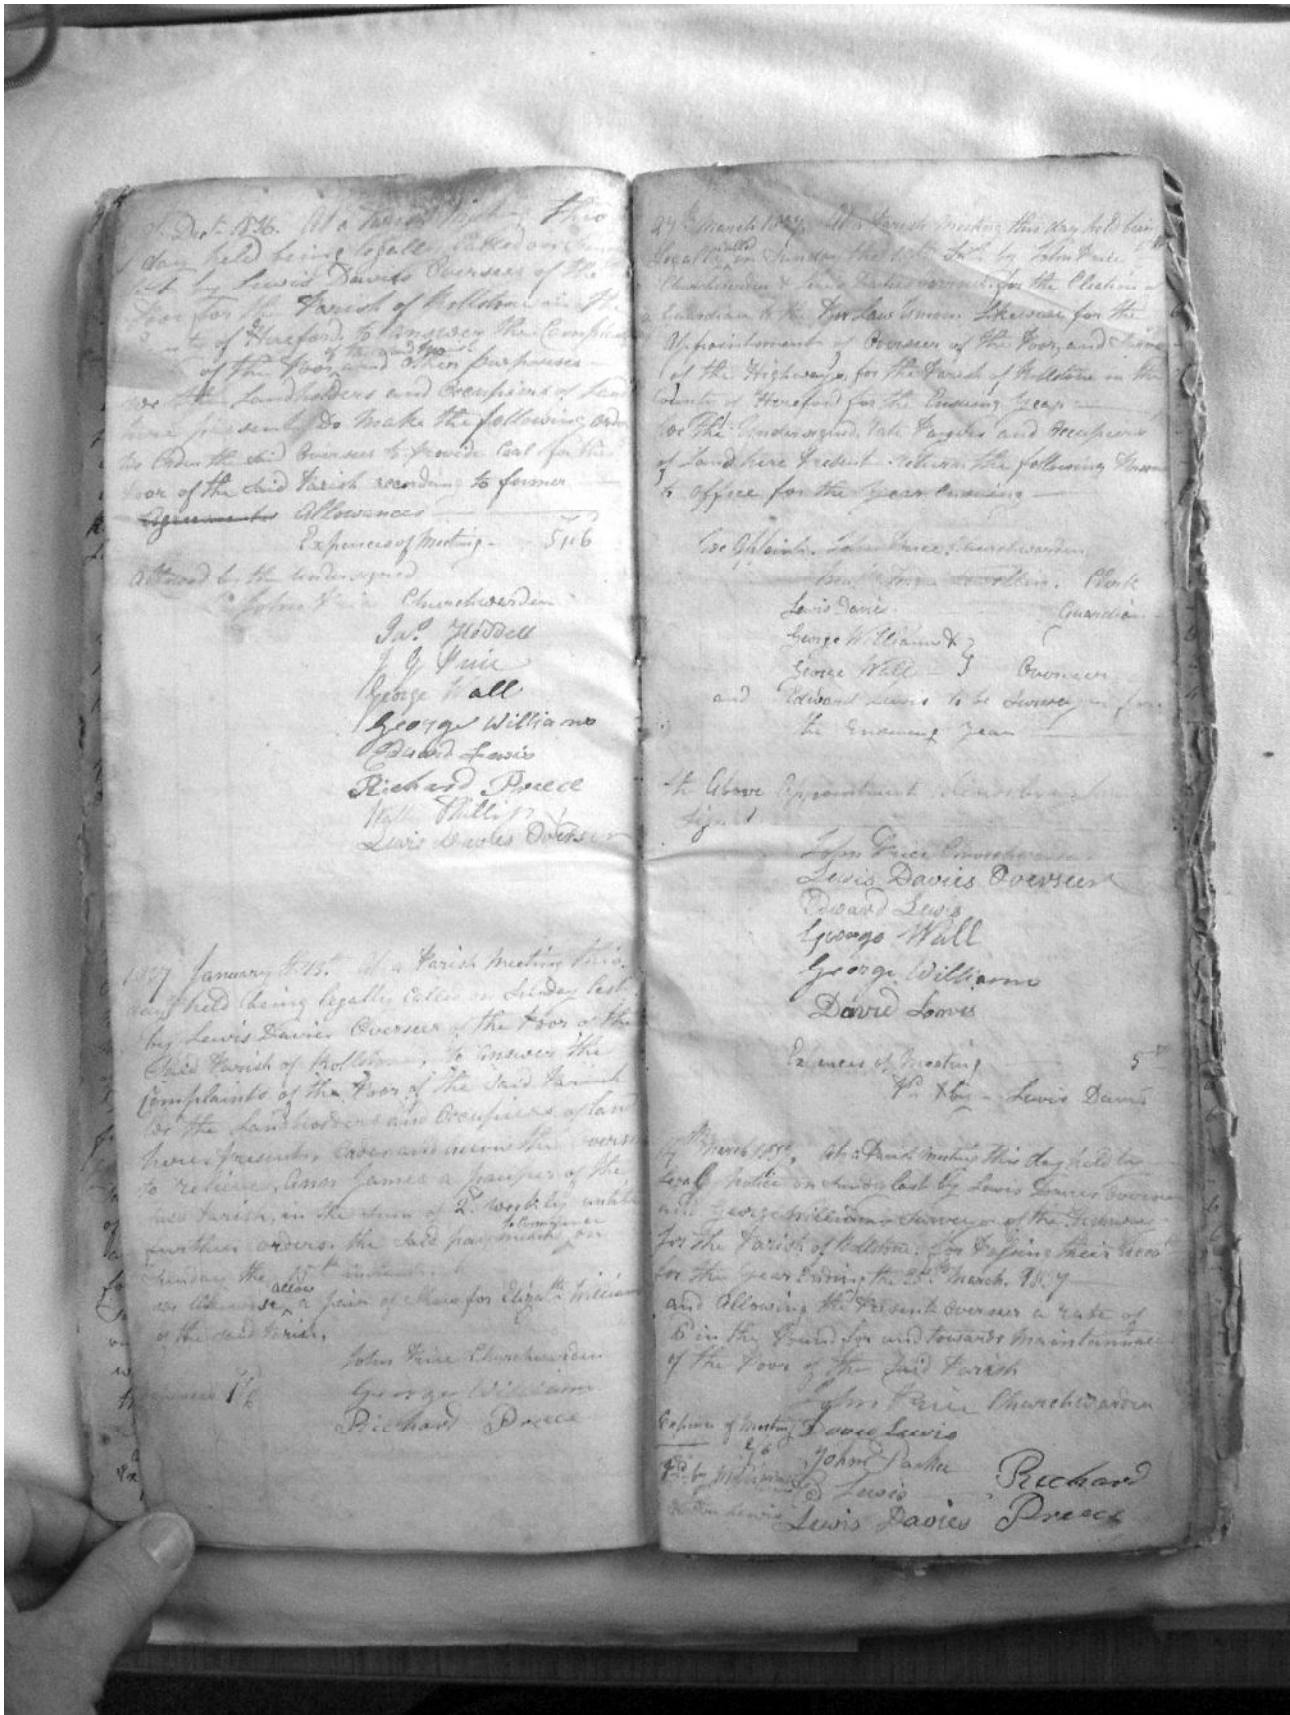 Decr 1836. At a Parish Meeting this
day held being legally Called on Sunday
last by Lewis Davies Overseer of the
Poor for the Parish of Rollstone in the
of Hereford, to answer the Complaints
of the Poor of the said Parish and other purpouses
we the Landholders and Occupiers of Land
here present Do Make the following order
Order the said Overseer to provide Coal for the
Poor of the said Parish according to former
Agreements Allowances
Expences of Meeting - 5/6
by the undersigned
John Price Churchwarden
Jas. Hoddell
J G Price
George Wall
George Williams
Edward Lewis
Richard Preece
Phillips
Lewis Davies Overseer
1837 January 13th. At a Parish Meeting this
day held being legally Called on Sunday last
by Lewis Davies Overseer of the Poor of the
Said Parish of Rollstone, to Answer the
Complaints of the Poor of the said Parish
We the Landholders and Occupiers of land
here present, Order and the Overseer
to relieve Ann James a pauper of the
said Parish, in the sum of 2s. weekly untill
further orders. the said payment to Commence on
Sunday the 15th
we likewise allow a pair of Shoes for Elizath Williams
of the said Parish.
John Price Churchwarden
George Williams
Richard Preece
27th March 1837. At a Parish Meeting this day held being
Legally called on Sunday the by John Price
Churchwarden & Lewis Davies for the Election of
a Guardian to the Poor Law Union Likewise for the
Appointment of Overseer of the Poor, and
of the Highways, for the Parish of Rollstone in the
County of Hereford for the Ensuing Year
We the Undersigned, Rate Payers and Occupiers
of Land here Present return the following
to office for the year ensuing
We Appoint. John Price Churchwarden
Clerk
Lewis Davies Guardian
George Williams &
George Wall } Overseer
and Edward Lewis to be Surveyor for
the Ensuing Year
the Above Appointment
Signed
John Price Churchwarden
Lewis Davies Overseer
Edward Lewis
George Wall
George Williams
David
Expences of Meeting 5s
Pd by Lewis Davies
March 1837. At a Parish Meeting this day held by
Legal Notice on Sunday last by Lewis Davies Overseer
and George Williams Surveyor of the Highways
for the Parish of Rollstone. for Passing their
for the Year Ending the 25th March. 1837
and Allowing the Present Overseer a rate of
6 in the Pound for and towards Maintainance
of the Poor of the Said Parish
John Price Churchwarden
Expence of Meeting
Lewis
2/6
John Parker
Pd. by
Ed Lewis
Lewis Davies
Richard
Preece